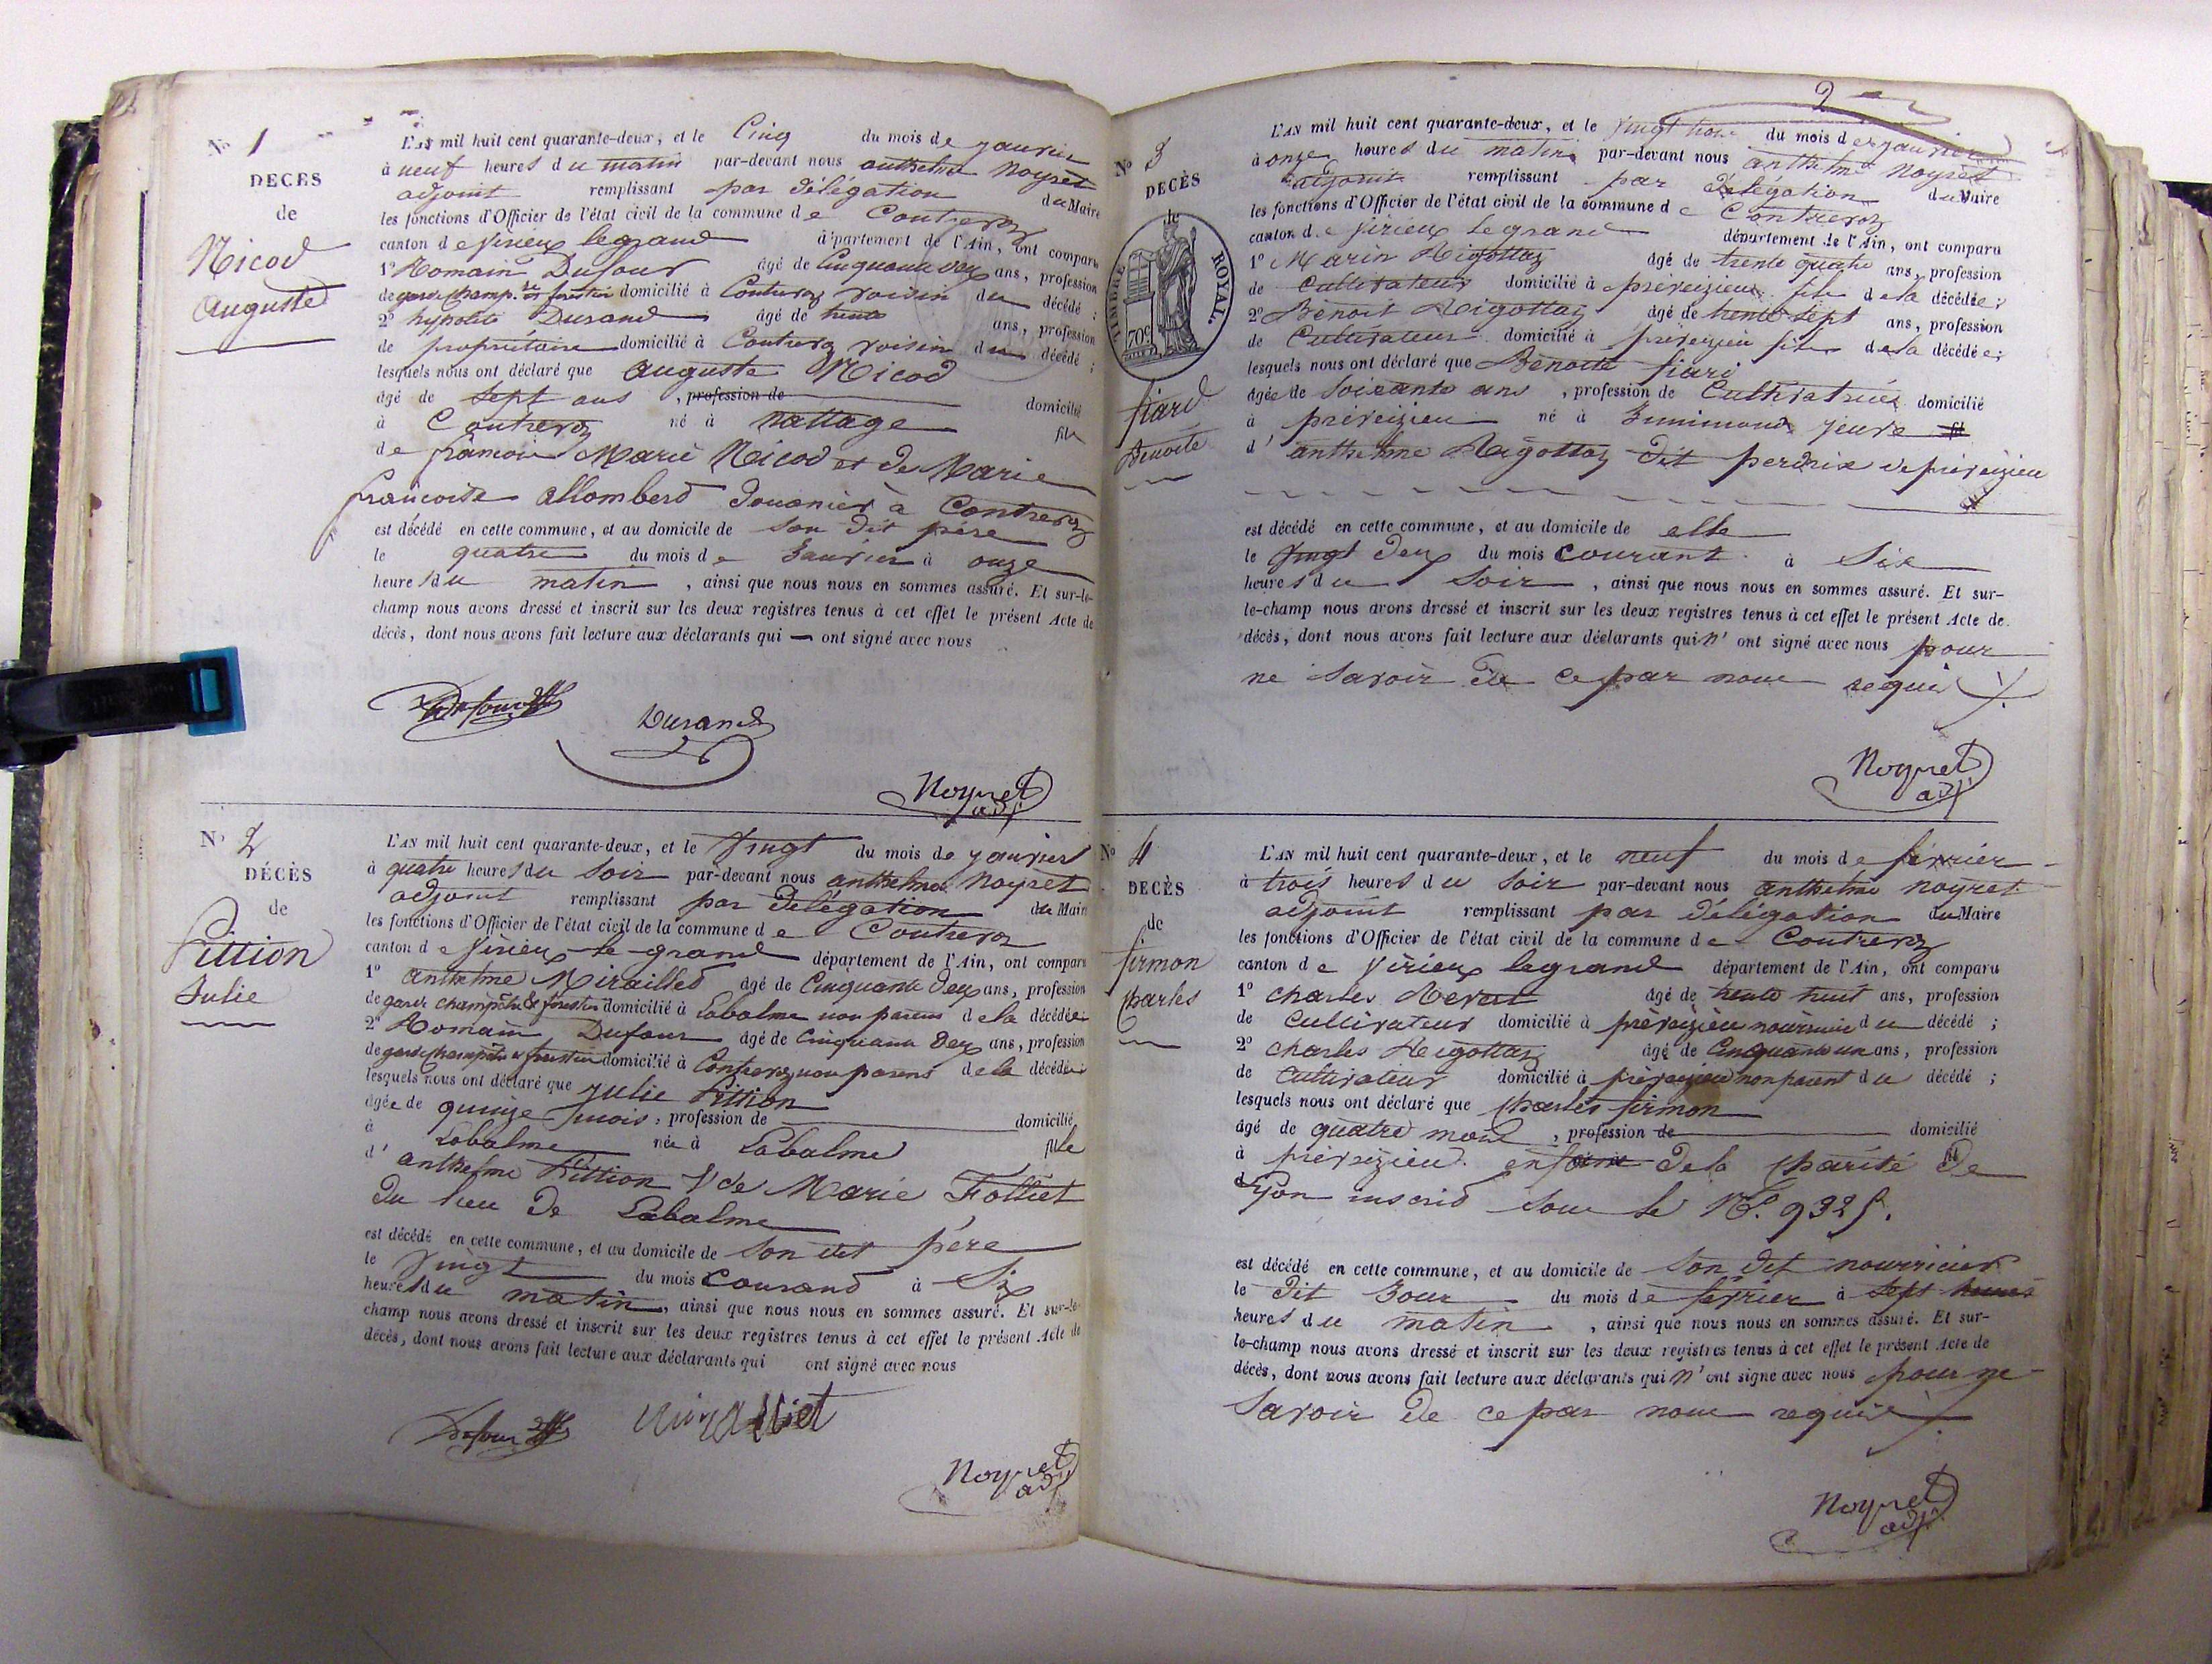 N° 1
DECES
de
Nicod
Auguste
L'AN mil huit cent quarante-deux, et le Cinq du mois de janvier
à neuf heures du matin par-devant nous anthelme Noyret
adjoint remplissant par délégation du Maire
les fonctions d'Officier de l'état civil de la commune de Contrevoz
canton de virieux legrand département de l'Ain, ont comparu
1° Romain Dufour âgé de Cinquante deux ans, profession
de garde champ.tre et forestier domicilié à Contrevoz voisin du décédé ;
2° hypolite Durand âgé de trente ans, profession
de propriétaire domicilié à Contrevoz voisin du décédé ;
lesquels nous ont déclaré que auguste Nicod
âgé de sept ans , profession de domicilié
à Contrevoz né à nattage fils
de francois Marie Nicod et de Marie
francoise allomberd Douanier à Contrevoz
est décédé en cette commune, et au domicile de son dit père
le quatre du mois de Janvier à onze
heures du matin , ainsi que nous nous en sommes assuré. Et sur-le-
champ nous avons dressé et inscrit sur les deux registres tenus à cet effet le présent Acte de
décès, dont nous avons fait lecture aux déclarants qui — ont signé avec nous
Dufour
Durand
Noyret
adj.
N° 2
DÉCÈS
de
Pittion
Julie
L'AN mil huit cent quarante-deux, et le vingt du mois de janvier
à quatre heures du soir par-devant nous anthelme Noyret
adjoint remplissant par délégation du Maire
les fonctions d'Officier de l'état civil de la commune de Contrevoz
canton de virieux-le-grand département de l'Ain, ont comparu
1° anthelme Miraillet âgé de Cinquante deux ans, profession
de garde champêtre & forestier domicilié à Labalme non parens dela décédée
2° Romain Dufour âgé de cinquante deux ans, profession
de garde champêtre et forestier domicilié à Contrevoz non parens dela décédée
lesquels nous ont déclaré que julie Pittion
âgée de quinze mois, profession de domicilié
à Labalme née à Labalme fille
d' anthelme Pittion & de Marie Folliet
du lieu de Labalme
est décédé en cette commune, et au domicile de son dit père
le vingt du mois courand à Six
heures du matin, ainsi que nous nous en sommes assuré. Et sur-le-
champ nous avons dressé et inscrit sur les deux registres tenus à cet effet le présent Acte de
décès, dont nous avons fait lecture aux déclarants qui ont signé avec nous
Dufour
Noyret
adj.
2
N° 3
DECÈS
de
TIMBRE ROYAL.
70c
fiard
Benoite
L'AN mil huit cent quarante-deux, et le vingt trois du mois de janvier
à onze heures du matin par-devant nous anthelme Noyret
adjoint remplissant par délégation du Maire
les fonctions d'Officier de l'état civil de la commune de Contrevoz
canton de virieux Legrand département de l'Ain, ont comparu
1° Marin Rigottaz âgé de trente quatre ans, profession
de cultivateur domicilié à préveizieu fils dela décédée ;
2° Benoit Rigottaz âgé de trente sept ans, profession
de Cultivateur domicilié à préveizieu fils dela décédée ;
lesquels nous ont déclaré que Benoite fiard
âgée de soixante ans , profession de Cultivatrice domicilié
à préveizieu né à
d' anthelme Rigottaz dit perdrix de préveizieu
est décédé en cette commune, et au domicile de elle
le vingt deux du mois courant à Six
heures du Soir , ainsi que nous nous en sommes assuré. Et sur-
le-champ nous avons dressé et inscrit sur les deux registres tenus à cet effet le présent Acte de
décès, dont nous avons fait lecture aux déclarants qui n' ont signé avec nous pour
ne savoir de ce par nous requis
Noyret
adj.
N° 4
DECÈS
de
firmon
charles
L'AN mil huit cent quarante-deux, et le neuf du mois de février
à trois heures du soir par-devant nous anthelme Noyret
adjoint remplissant par délégation du Maire
les fonctions d'Officier de l'état civil de la commune de Contrevoz
canton de virieux legrand département de l'Ain, ont comparu
1° charles âgé de trente huit ans, profession
de cultivateur domicilié à préveizieu nourricier du décédé ;
2° charles Rigottaz âgé de Cinquante un ans, profession
de cultivateur domicilié à préveizieu non parent du décédé ;
lesquels nous ont déclaré que charles firmon
âgé de quatre mois , profession de domicilié
à préveizieu enfant dela charité de
Lyon inscrid sous le N°. 9325.
est décédé en cette commune, et au domicile de son dit nourricier
le dit Jour du mois de février à sept heures
heures du matin , ainsi que nous nous en sommes assuré. Et sur-
le-champ nous avons dressé et inscrit sur les deux registres tenus à cet effet le présent Acte de
décès, dont nous avons fait lecture aux déclarants qui n' ont signé avec nous pour ne
savoir de ce par nous requis
Noyret
adj.